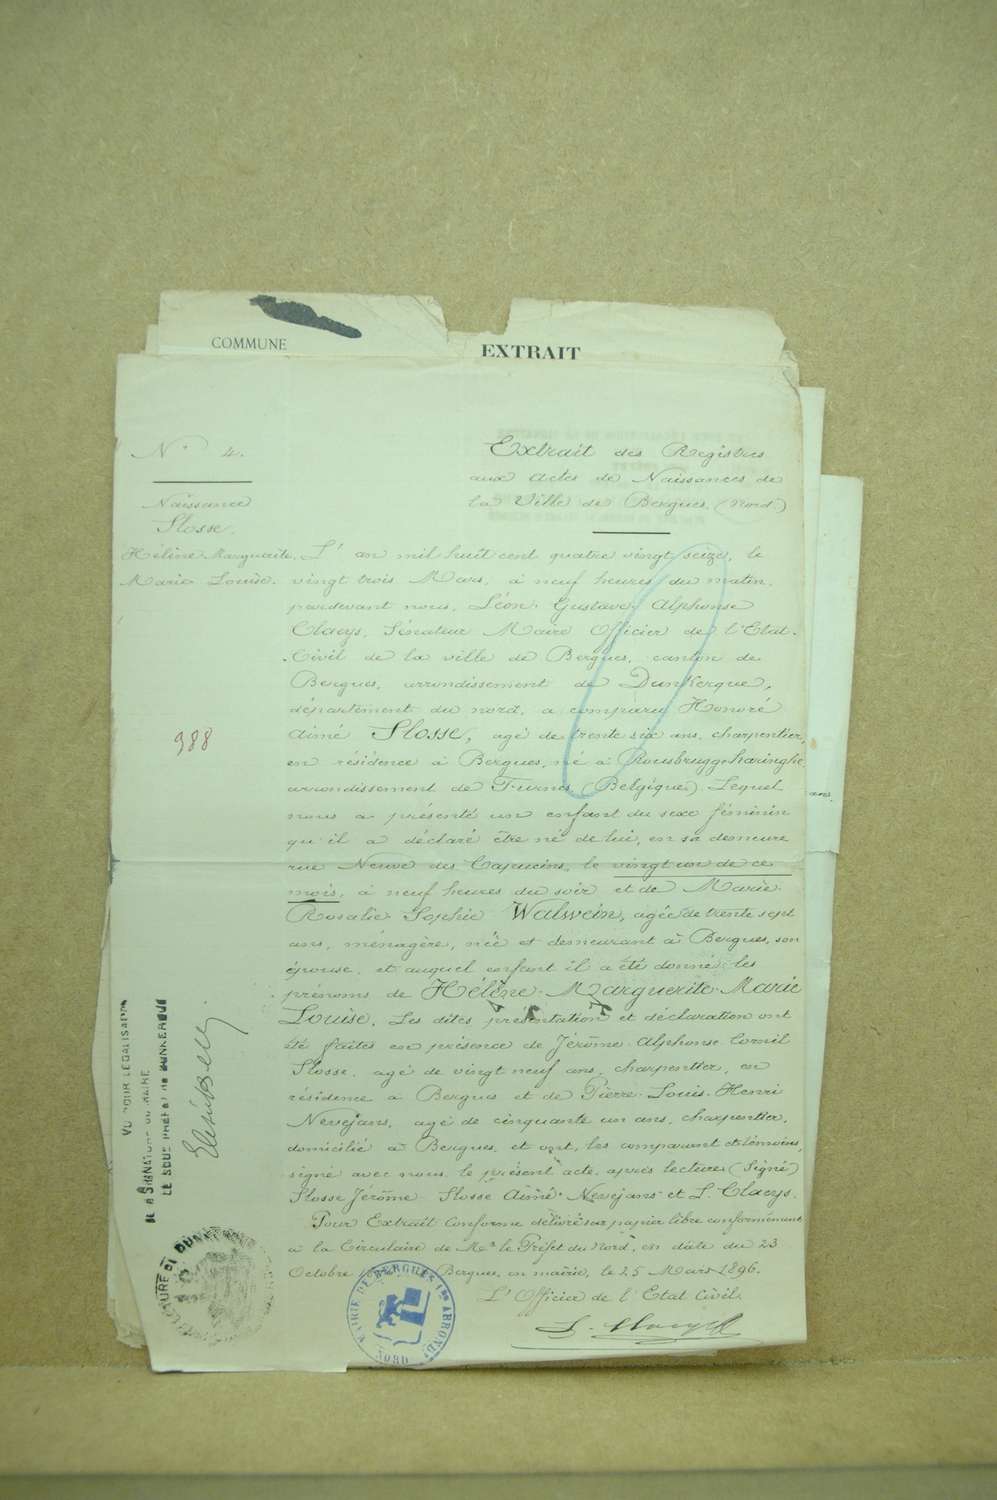 COMMUNE
EXTRAIT
N° 4.
Extrait des Registres
aux actes de Naissances de
la Ville de Bergues (Nord)
Naissance
Slosse.
Héline Marguerite
Marie Louise.
L'an mil huit cent quatre vingt seize, le
vingt trois Mars, à neuf heures du matin,
pardevant nous, Léon Gustave Alphonse
Claeys, Sénateur Maire Officier de l'Etat
Civil de la ville de Bergues, canton de
Bergues, arrondissement de Dunkerque,
département du nord, a comparu Honoré
Aimé Slosse, agé de trente six ans, charpentier,
en résidence à Bergues, né à Rousbrugge-haringhe
arrondissement de Furnes (Belgique) Lequel
nous a présenté un enfant du sexe féminin
qu'il a déclaré être né de lui, en sa demeure
rue Neuve des Capucins, le vingt un de ce
mois, à neuf heures du soir et de Marie
Rosalie Sophie Walwein, agée de trente sept
ans, ménagère, née et demeurant à Bergues, son
épouse, et auquel enfant il a été donné les
prénoms de Hélène Marguerite Marie
Louise. Les dites présentation et déclaration ont
été faites en présence de Jérôme Alphonse Cornil
Slosse, agé de vingt neuf ans, charpentier, en
résidence à Bergues et de Pierre Louis Henri
Nevejans, agé de cinquante un ans, charpentier,
domicilié à Bergues, et ont, les comparant et témoins,
signé avec nous le présent acte, après lecture (Signé)
Slosse Jérôme Slosse Aimé Nevejans et L. Claeys.
Pour Extrait conforme délivré sur papier libre conformément
à la Circulaire de Mr le Préfet du Nord, en date du 23
Octobre Bergues, en mairie, le 25 Mars 1896.
L'Officier de l'Etat Civil
L. Claeys
988
VU POUR LÉGALISATION
DE LA SIGNATURE DU MAIRE
LE SOUS PRÉFET DE DUNKERQUE
MAIRIE DE BERGUES
NORD
ans.